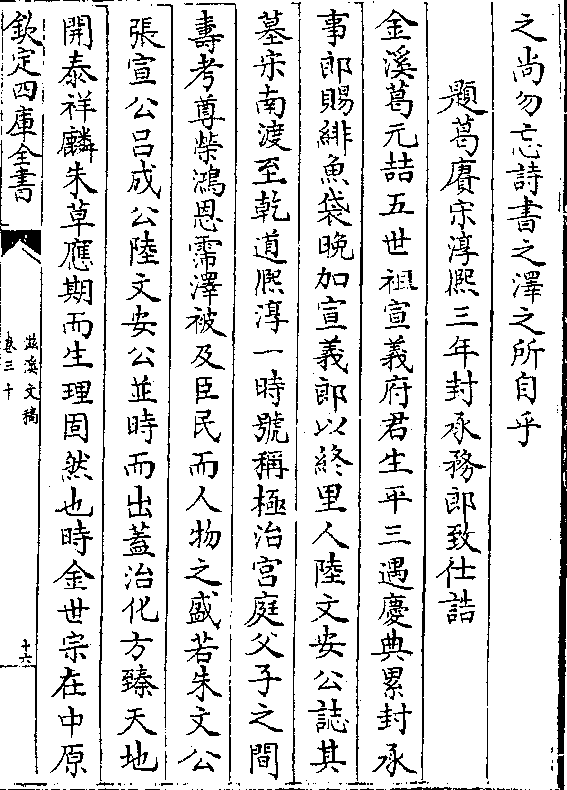 之尚勿忘詩書之澤之所自乎
題葛賡宋淳熈三年封承務郎致仕誥
金溪葛元喆五世祖宣義府君生平三遇慶典累封承
事郎賜緋魚袋晚加宣義郎以終里人陸文安公誌其
墓宋南渡至乾道熈淳一時號稱極治宫庭父子之間
壽考尊榮鴻恩霈澤被及臣民而人物之盛若朱文公
張宣公吕成公陸文安公並時而出蓋治化方臻天地
開泰祥麟朱草應期而生理固然也時金世宗在中原
欽定四庫全書
滋溪文稿
卷三十
十六